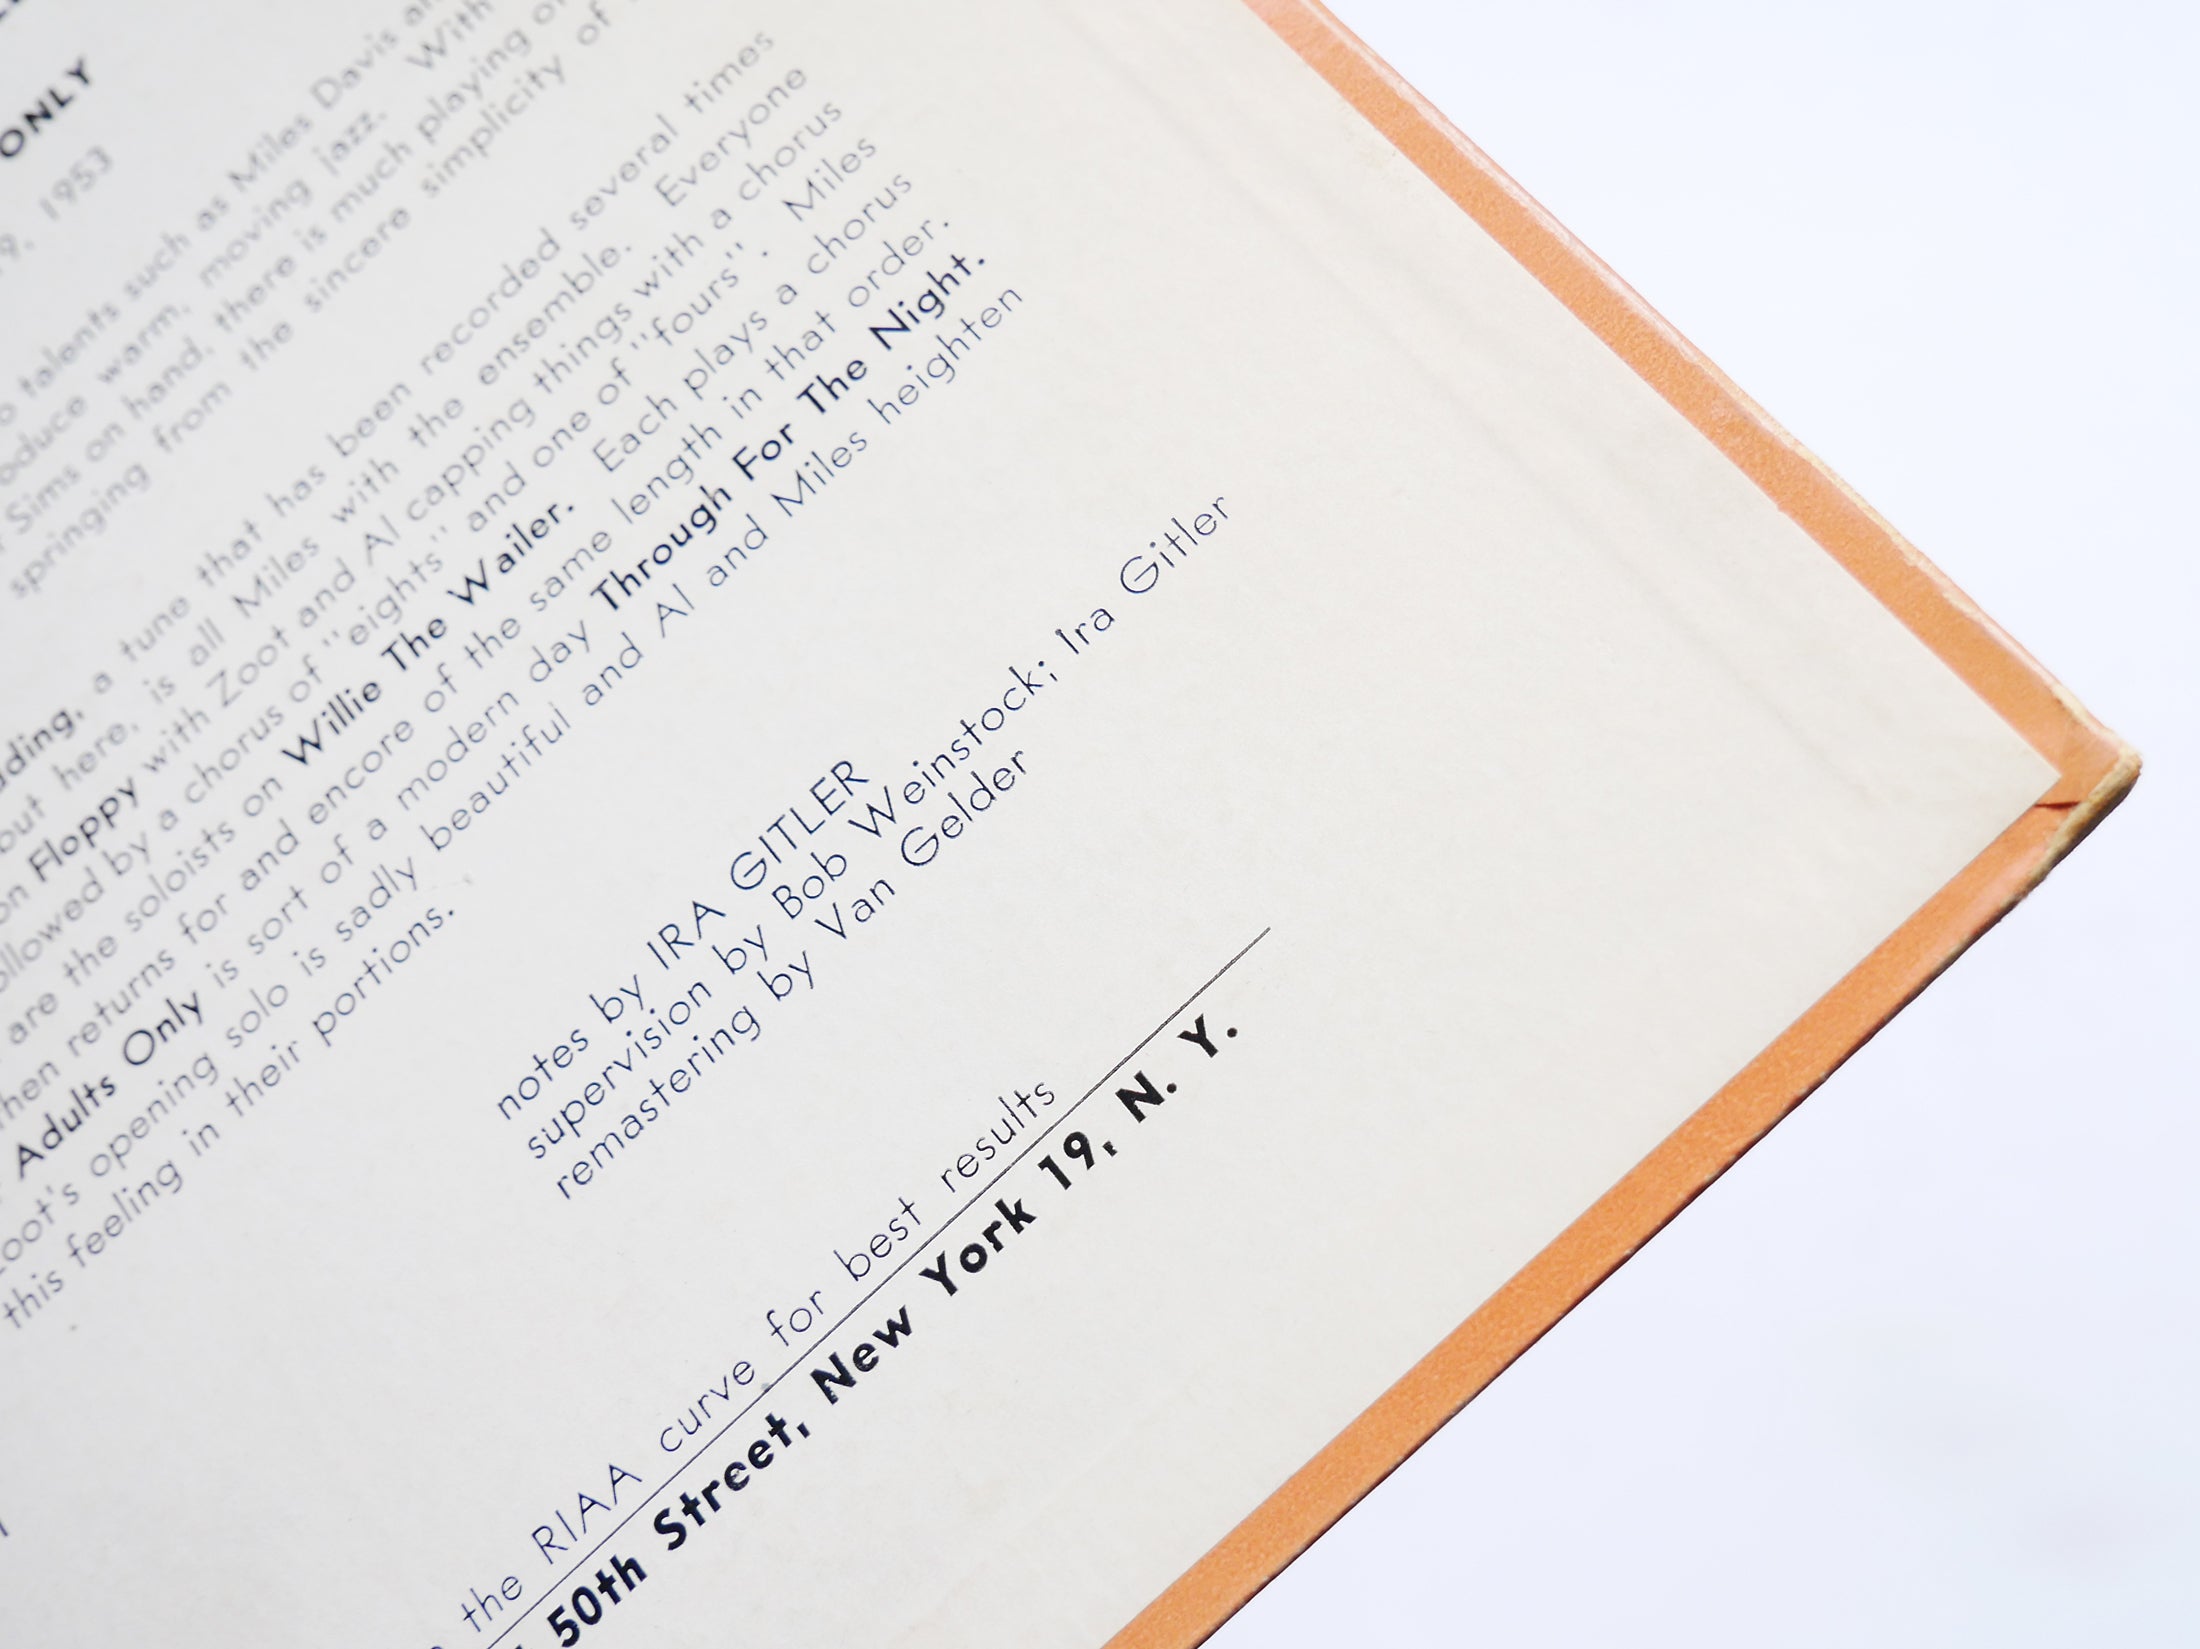 ONLY
9, 1953
talents such as Miles Davis
warm, moving jazz. With
Sims on hand, there is much playing
springing from the sincere simplicity of
a tune that has been recorded several times
out here, is all Miles with the ensemble. Everyone
on Floppy with Zoot and Al capping things with a chorus
followed by a chorus of "eights" and one of "fours". Miles
are the soloists on Willie The Wailer. Each plays a chorus
then returns for and encore of the same length in that order.
Adults Only is sort of a modern day Through For The Night.
Zoot's opening solo is sadly beautiful and Al and Miles heighten
this feeling in their portions.
notes by IRA GITLER
supervision by Bob Weinstock; Ira Gitler
remastering by Van Gelder
the RIAA curve for best results
50th Street, New York 19, N. Y.